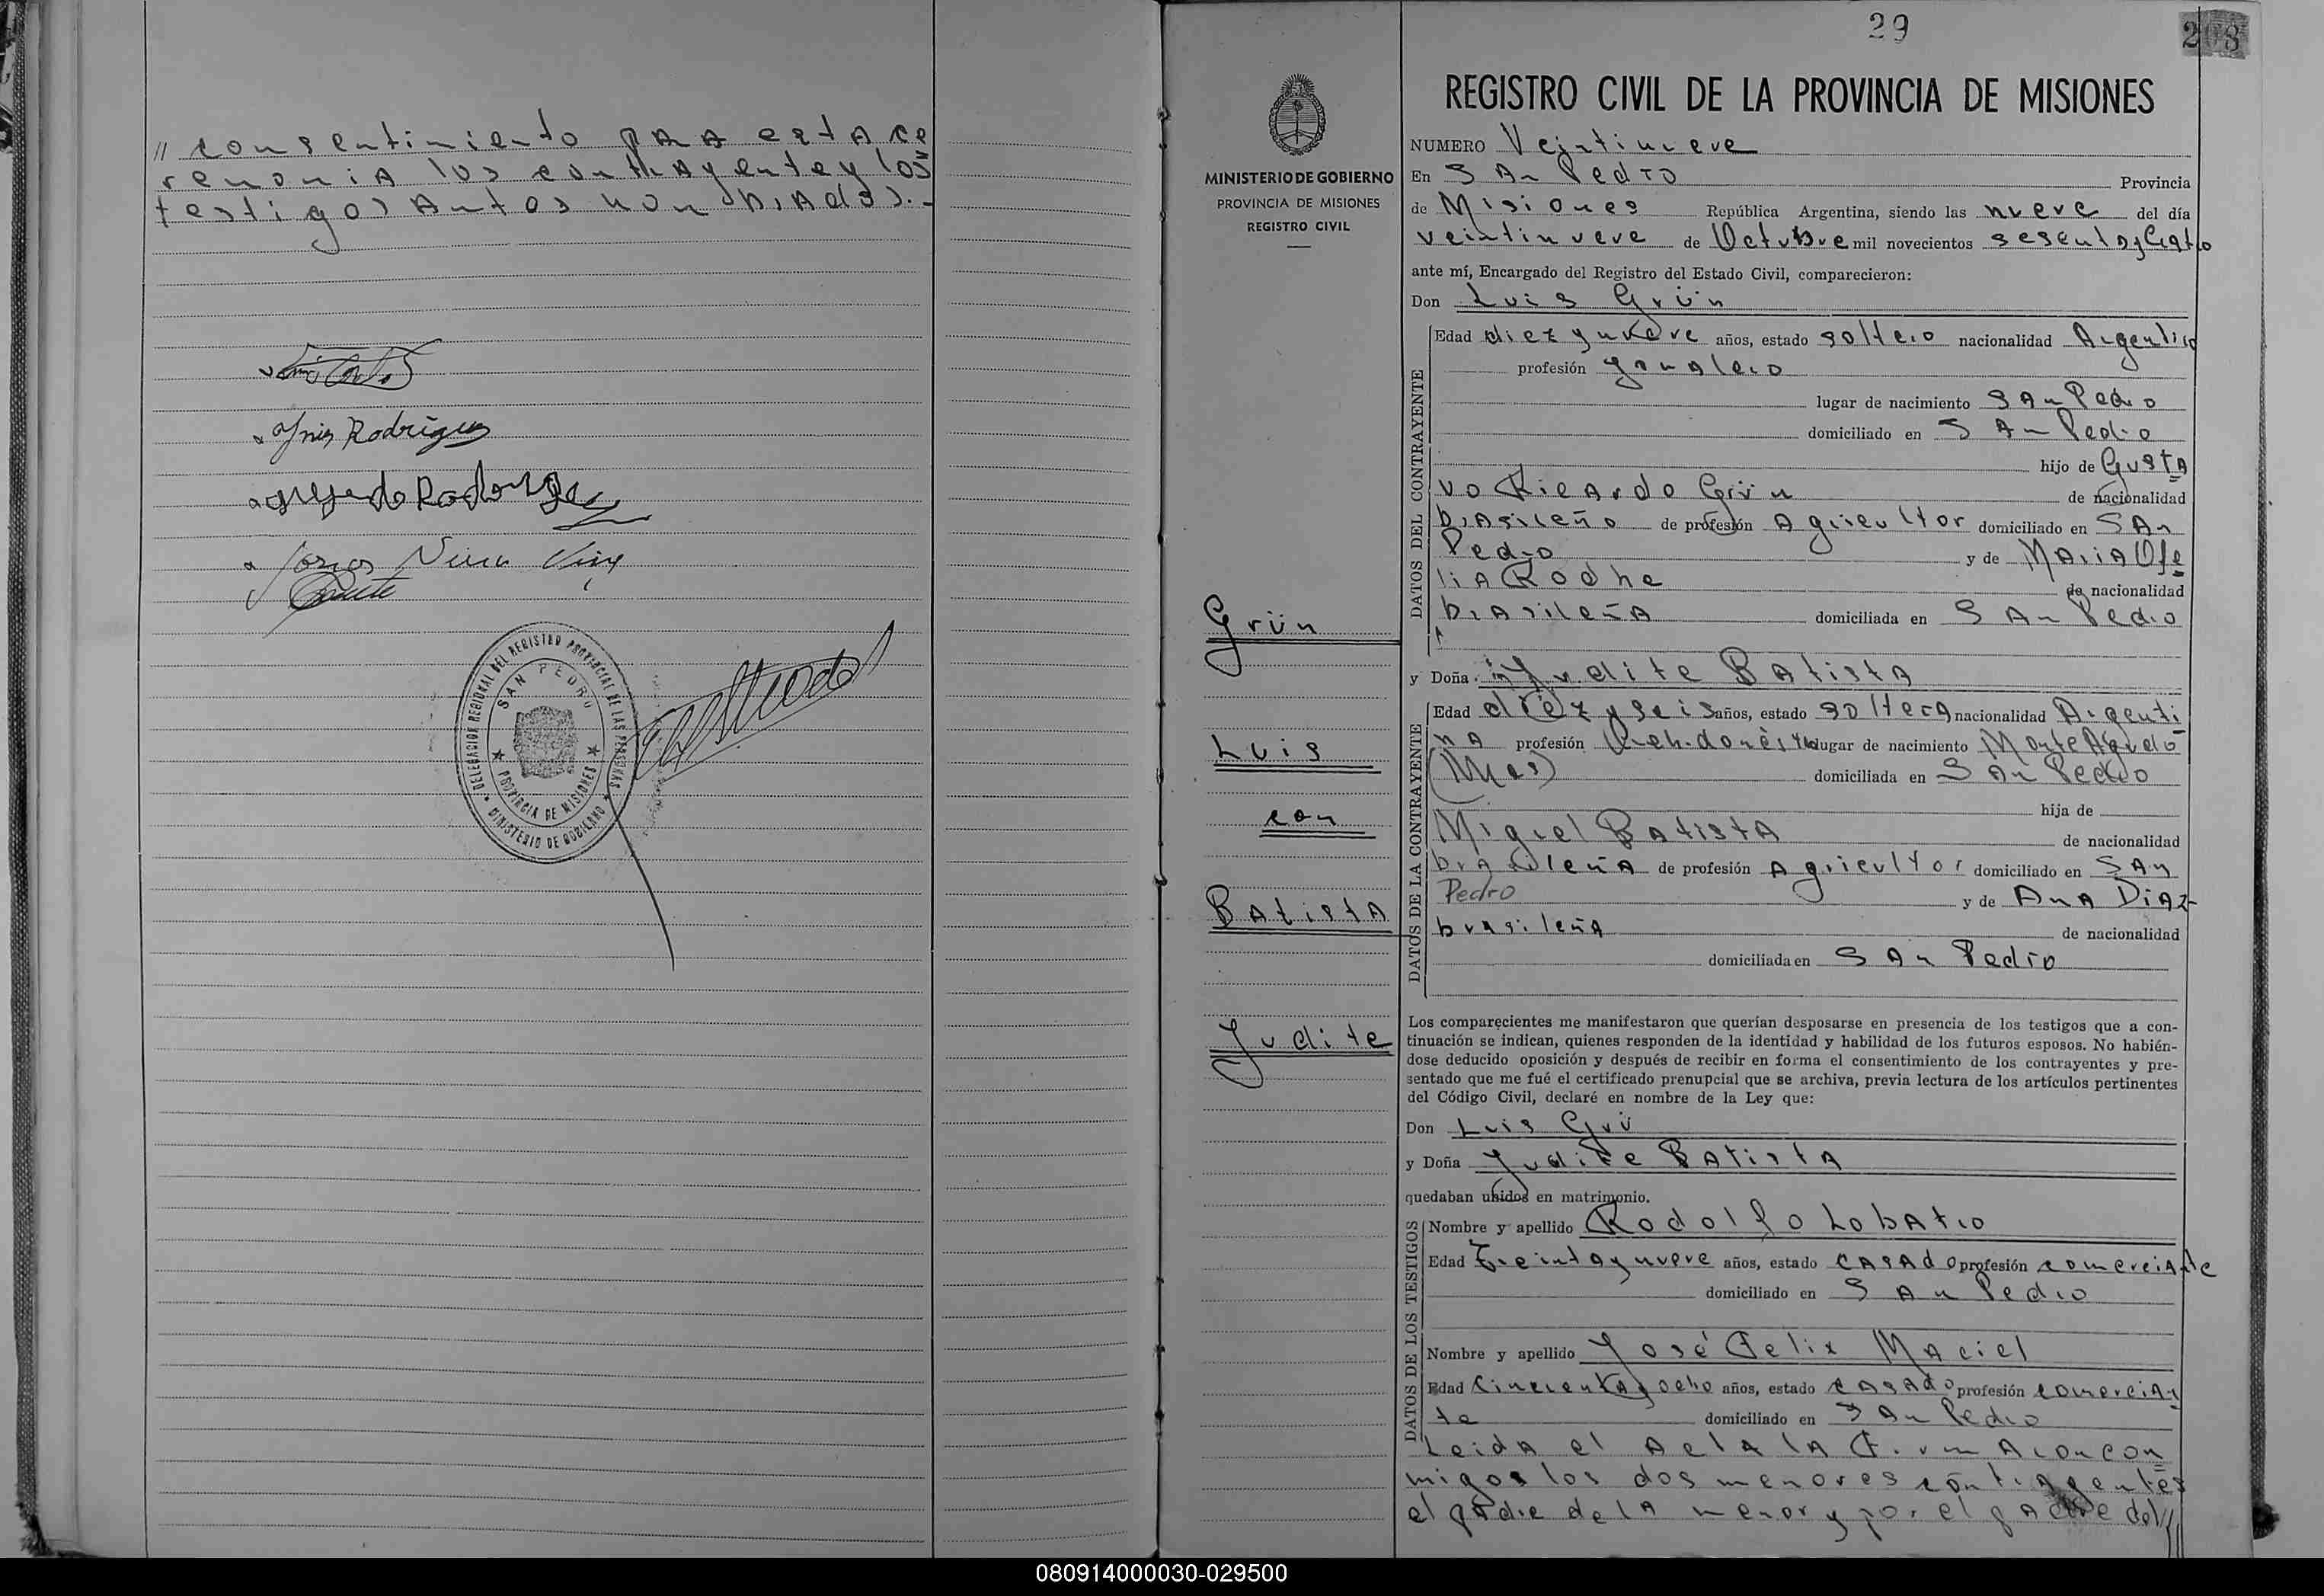 // consentimiento para esta ce
remonia los contrayente y los
testigos antos nombrados.-
Ynis Rodrigues
DELEGACION REGIONAL DEL REGISTRO PROVINCIAL DE LAS PERSONAS
SAN PEDRO
PROVINCIA DE MISIONES
MINISTERIO DE GOBIERNO
29
208
MINISTERIO DE GOBIERNO
PROVINCIA DE MISIONES
REGISTRO CIVIL
Grün
Luis
con
Batista
Yudite
REGISTRO CIVIL DE LA PROVINCIA DE MISIONES
NUMERO Veintinueve
En San Pedro Provincia
de Misiones República Argentina, siendo las nueve del día
veintinueve de Octubre mil novecientos sesenta y Cuatro
ante mí, Encargado del Registro del Estado Civil, comparecieron:
Don Luis Grün
DATOS DEL CONTRAYENTE
Edad diez y nueve años, estado soltero nacionalidad Argentino
profesión Yornalero
lugar de nacimiento San Pedro
domiciliado en San Pedro
hijo de Gusta
vo Ricardo Grün de nacionalidad
brasileño de profesión Agricultor domiciliado en San
Pedro y de Maria Ofe
lia Rodhe de nacionalidad
brasileña domiciliada en San Pedro
y Doña Yudite Batista
DATOS DE LA CONTRAYENTE
Edad diez y seis años, estado soltera nacionalidad Argenti
na profesión lugar de nacimiento Monteagudo
(Mnes) domiciliada en San Pedro
hija de
Miguel Batista de nacionalidad
brasileña de profesión Agricultor domiciliado en San
Pedro y de Ana Diaz
brasileña de nacionalidad
domiciliada en San Pedro
Los comparecientes me manifestaron que querían desposarse en presencia de los testigos que a con-
tinuación se indican, quienes responden de la identidad y habilidad de los futuros esposos. No habién-
dose deducido oposición y después de recibir en forma el consentimiento de los contrayentes y pre-
sentado que me fué el certificado prenupcial que se archiva, previa lectura de los artículos pertinentes
del Código Civil, declaré en nombre de la Ley que:
Don Luis Grü
y Doña Yudite Batista
quedaban unidos en matrimonio.
DATOS DE LOS TESTIGOS
Nombre y apellido Rodolfo Lobatro
Edad Treinta y nueve años, estado casado profesión comerciante
domiciliado en San Pedro
Nombre y apellido José Felix Maciel
Edad Cincuenta y ocho años, estado casado profesión comercian
te domiciliado en San Pedro
Leida el acta la firmaron con
migos los dos menores contrayentes
el padre de la menor y por el padre del //
080914000030-029500